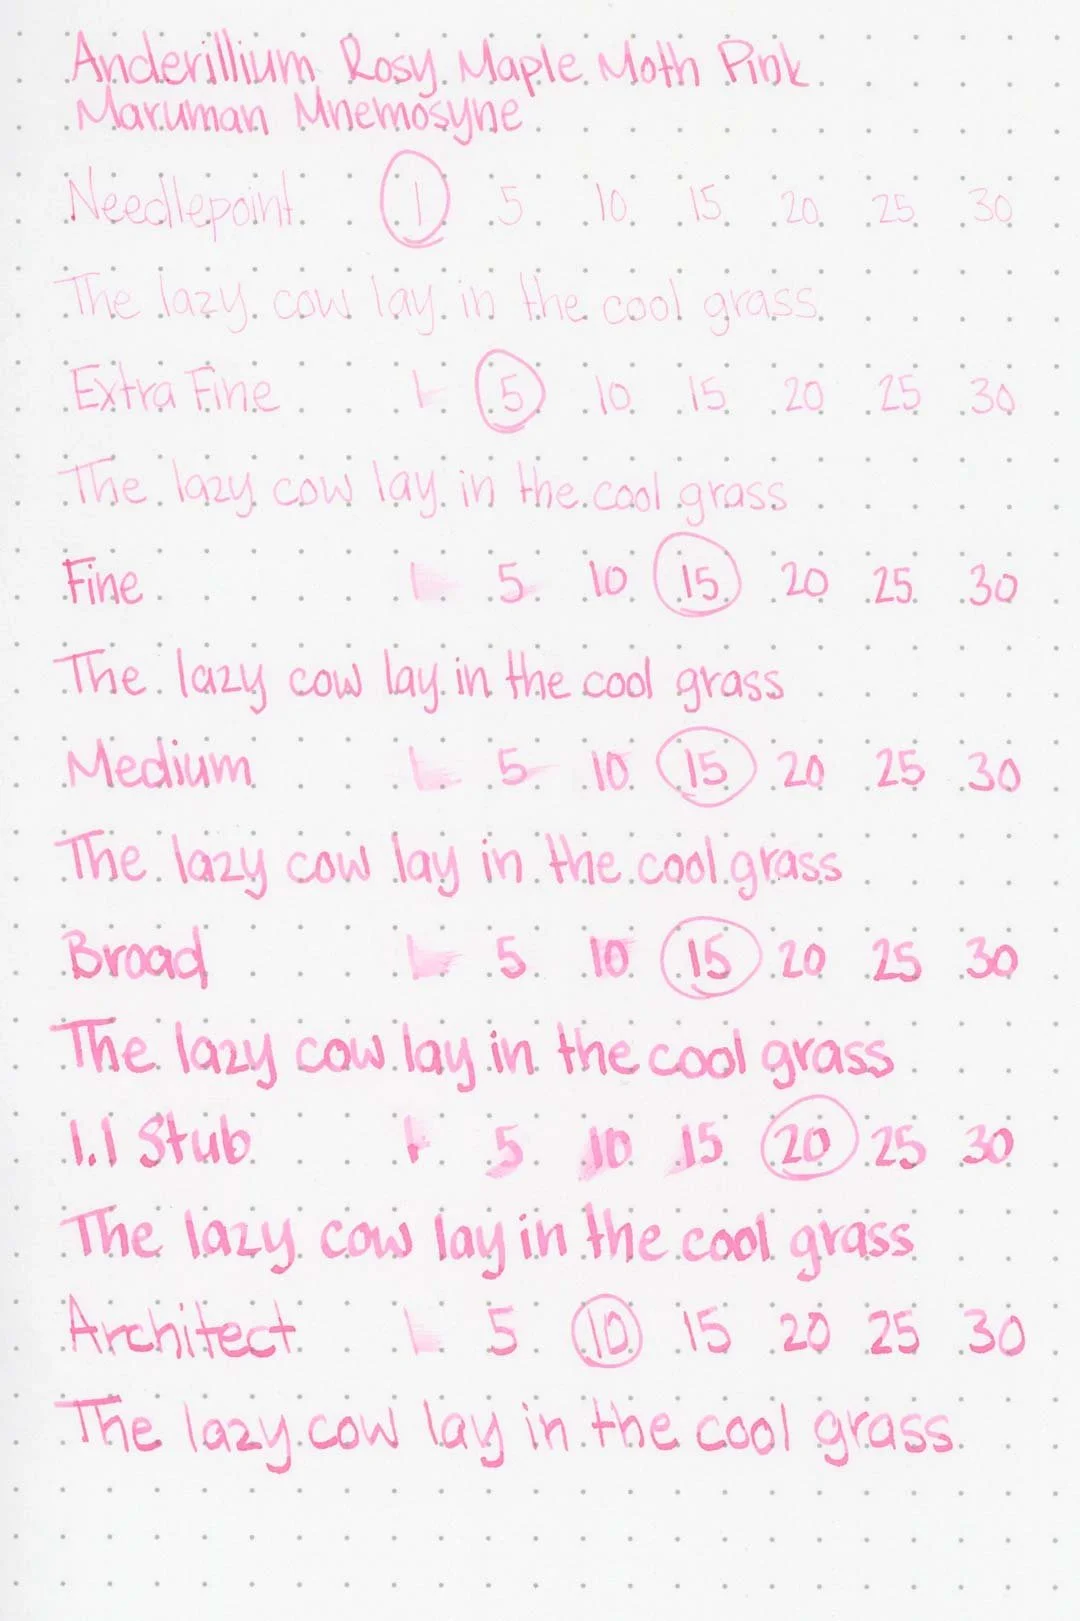 Anderillium Rosy Maple Moth Pink
Maruman Mnemosyne
Needlepoint 1 5 10 15 20 25 30
The lazy cow lay in the cool grass
Extra Fine 1 5 10 15 20 25 30
The lazy cow lay in the cool grass
Fine 1 5 10 15 20 25 30
The lazy cow lay in the cool grass
Medium 1 5 10 15 20 25 30
The lazy cow lay in the cool grass
Broad 1 5 10 15 20 25 30
The lazy cow lay in the cool grass
1.1 Stub 1 5 10 15 20 25 30
The lazy cow lay in the cool grass
Architect 1 5 10 15 20 25 30
The lazy cow lay in the cool grass